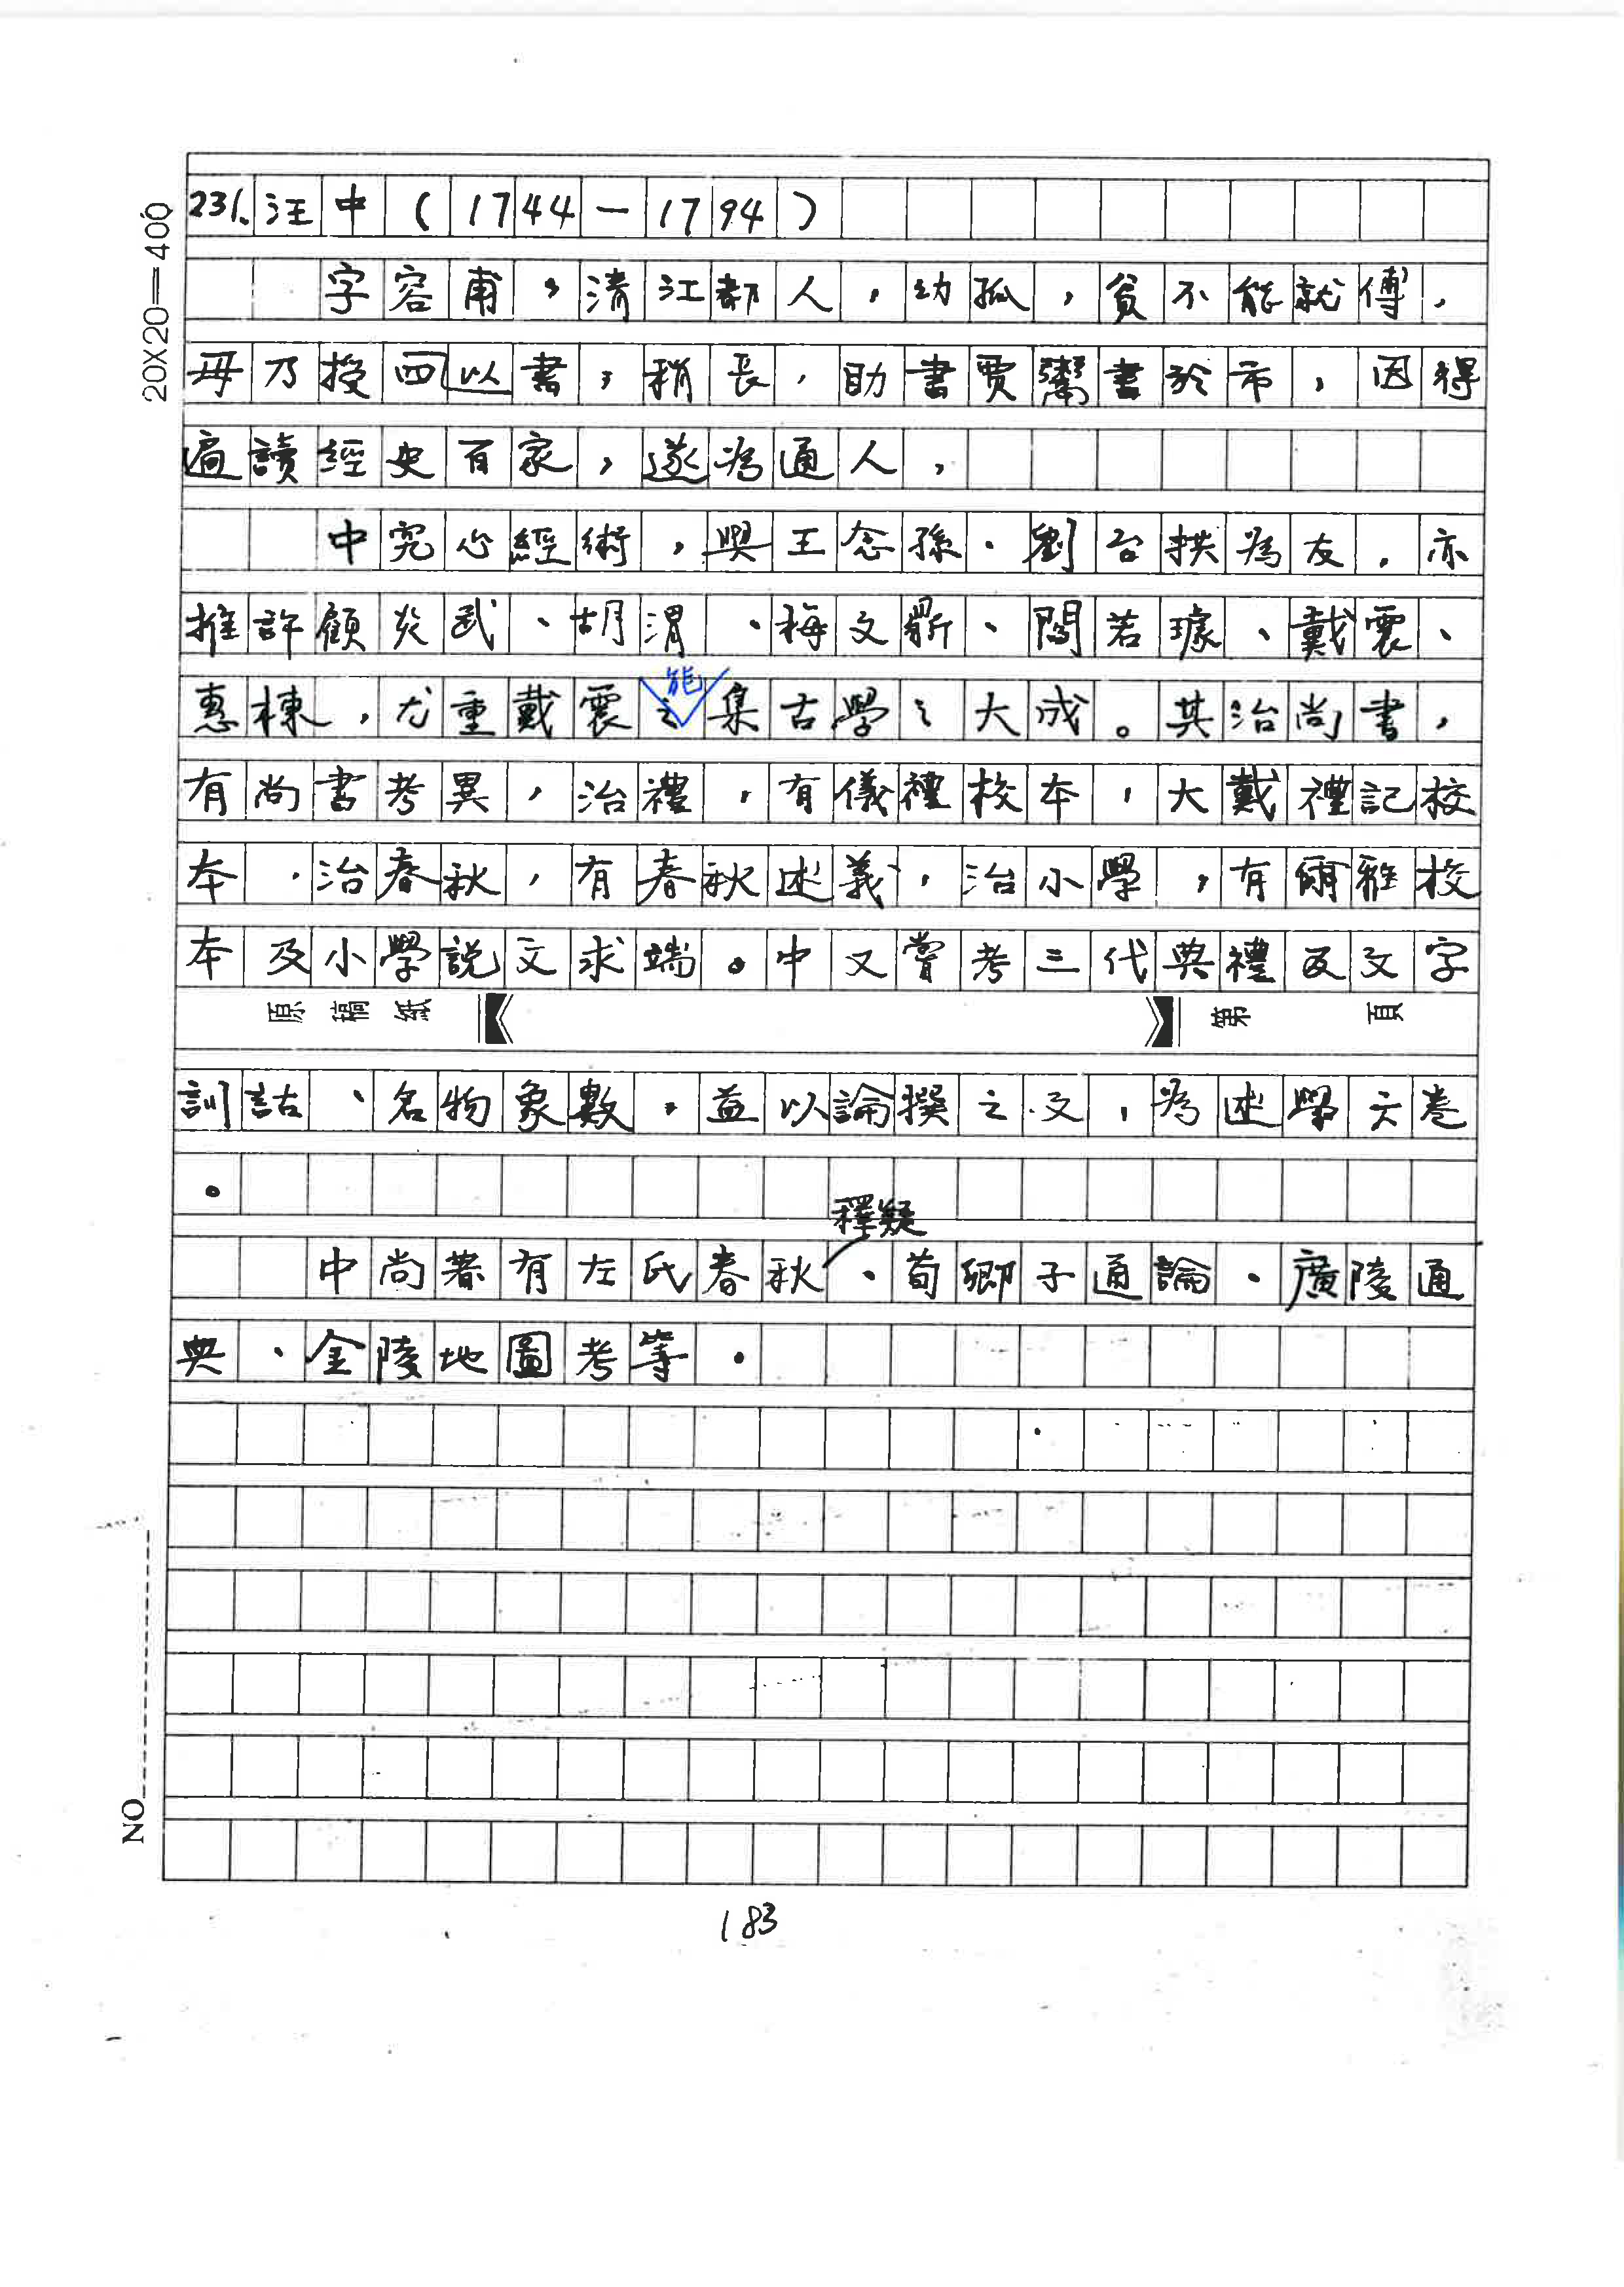 20X20=400
231.汪中(1744—1794)
字容甫，清江都人，幼孤，貧不能就傅，
母乃授四以書，稍長，助書賈鬻書於市，因得
遍讀經史百家，遂為通人，
中究心經術，與王念孫、劉台拱為友，亦
推許顧炎武、胡渭、梅文鼎、閻若璩、戴震、
惠棟，尤重戴震之能集古學之大成。其治尚書，
有尚書考異，治禮，有儀禮校本，大戴禮記校
本，治春秋，有春秋述義，治小學，有爾雅校
本及小學說文求端。中又嘗考三代典禮及文字
原稿紙 第 頁
訓詁、名物象數，益以論撰之文，為述學六卷
。
中尚著有左氏春秋釋疑、荀卿子通論、廣陵通
典、金陵地圖考等。
NO
183